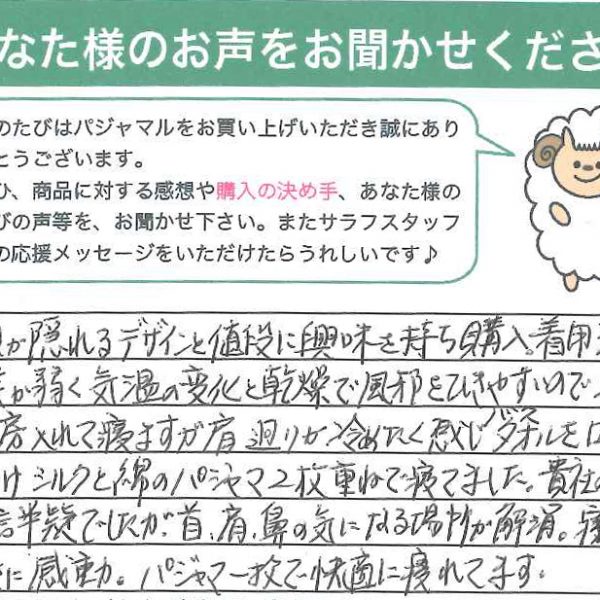 なた様のお声をお聞かせくださ
のたびはパジャマルをお買い上げいただき誠にあり
とうございます。
ひ、商品に対する感想や購入の決め手、あなた様の
びの声等を、お聞かせ下さい。またサラフスタッフ
の応援メッセージをいただけたらうれしいです♪
が隠れるデザインと値段に興味を持ち購入。着用
が弱く気温の変化と乾燥で風邪をひきやすいので
房入れて寝ますが肩廻りが冷めたく感じタオルを
け シルクと綿のパジャマ2枚重ねで寝てました。貴社
半疑でしたが、首、肩、鼻の気になる場所が解消。寝
に感動。パジャマ一枚で快適に寝れてます。